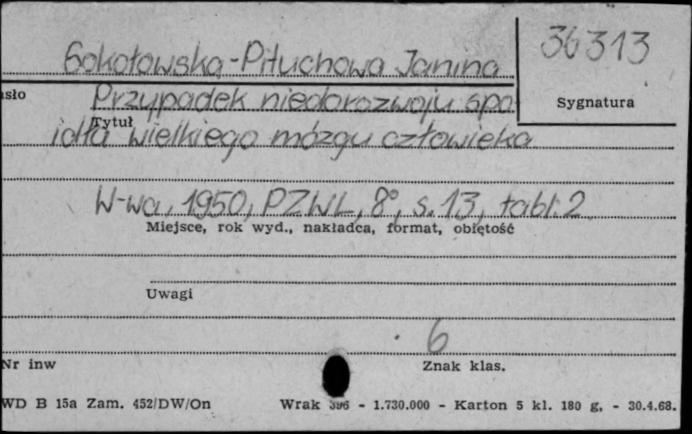 36313
Sokołowska-Piłuchowa Janina
Sygnatura
asło
Przypadek niedorozwoju spo-
Tytuł
idła wielkiego mózgu człowieka
W-wa, 1950, PZWL, 8°, s. 13, tabl. 2
Miejsce, rok wyd., nakładca, format, objętość
Uwagi
6
Nr inw
Znak klas.
WD B 15a Zam. 452/DW/On Wrak 396 - 1.730.000 - Karton 5 kl. 180 g. - 30.4.68.